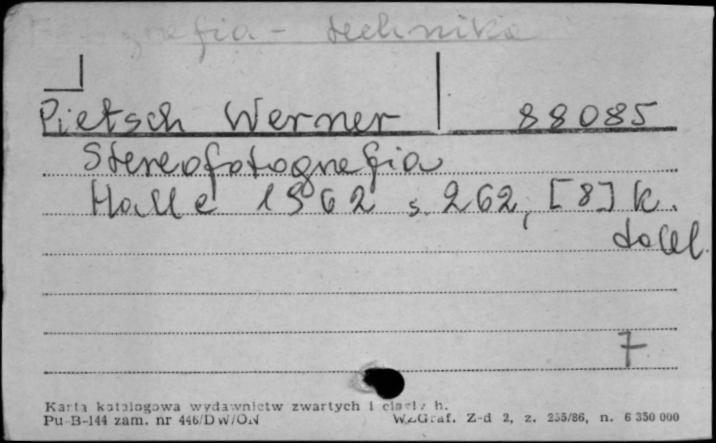 Fotografia - technika
Pietsch Werner 88085
Stereofotografia
Halle 1962 s. 262, [8] k.
tabl.
7
Karta katalogowa wydawnictw zwartych i ciągłych.
Pu-B-144 zam. nr 446/DW/ON W.Z.Graf. Z-d 2, z. 255/86, n. 6 350 000